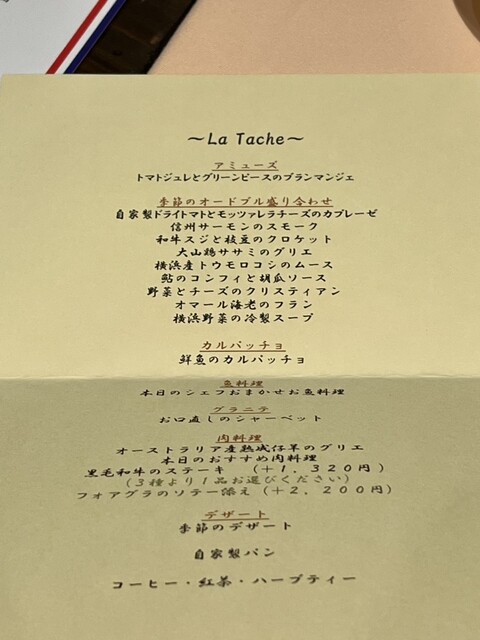 ～La Tache～
アミューズ
トマトジュレとグリーンピースのブランマンジェ
季節のオードブル盛り合わせ
自家製ドライトマトとモッツァレラチーズのカプレーゼ
信州サーモンのスモーク
和牛スジと枝豆のクロケット
大山鶏ササミのグリエ
横浜産トウモロコシのムース
鮎のコンフィと胡瓜ソース
野菜とチーズのクリスティアン
オマール海老のフラン
横浜野菜の冷製スープ
カルパッチョ
鮮魚のカルパッチョ
魚料理
本日のシェフおまかせお魚料理
グラニテ
お口直しのシャーベット
肉料理
オーストラリア産熟成仔羊のグリエ
本日のおすすめ肉料理
黒毛和牛のステーキ （＋１，３２０円）
（３種より１品お選びください）
フォアグラのソテー添え（＋２，２００円）
デザート
季節のデザート
自家製パン
コーヒー・紅茶・ハーブティー